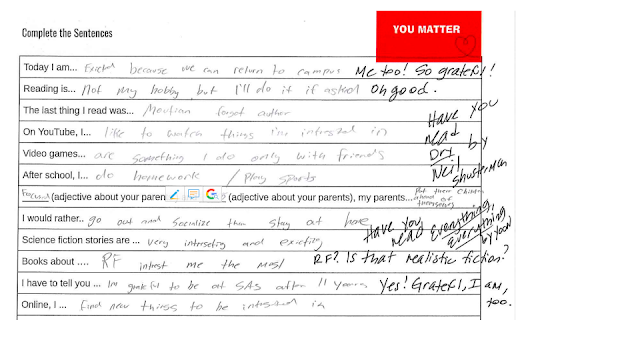 Complete the Sentences
YOU MATTER
Today I am... Excited because we can return to campus Me too! So grateful!
Reading is... Not my hobby but I'll do it if asked Oh good.
The last thing I read was... forgot author
On YouTube, I... like to watch things i'm intrested in
Video games... are something I do only with friends
Have you read Dry by Neil Shusterman
After school, I... do homework / Play sports
Focused (adjective about your paren (adjective about your parents), my parents... put their children ahead of themselves
I would rather.. go out and Socialize then stay at home
Science fiction stories are ... very intersting and exciting
Have you read Everything, Everything by Yoon
Books about .... RF intrest me the most RF? Is that realistic fiction?
I have to tell you ... Im grateful to be at SAS after 11 years Yes! Grateful, I am, too.
Online, I ... find new things to be intrested in